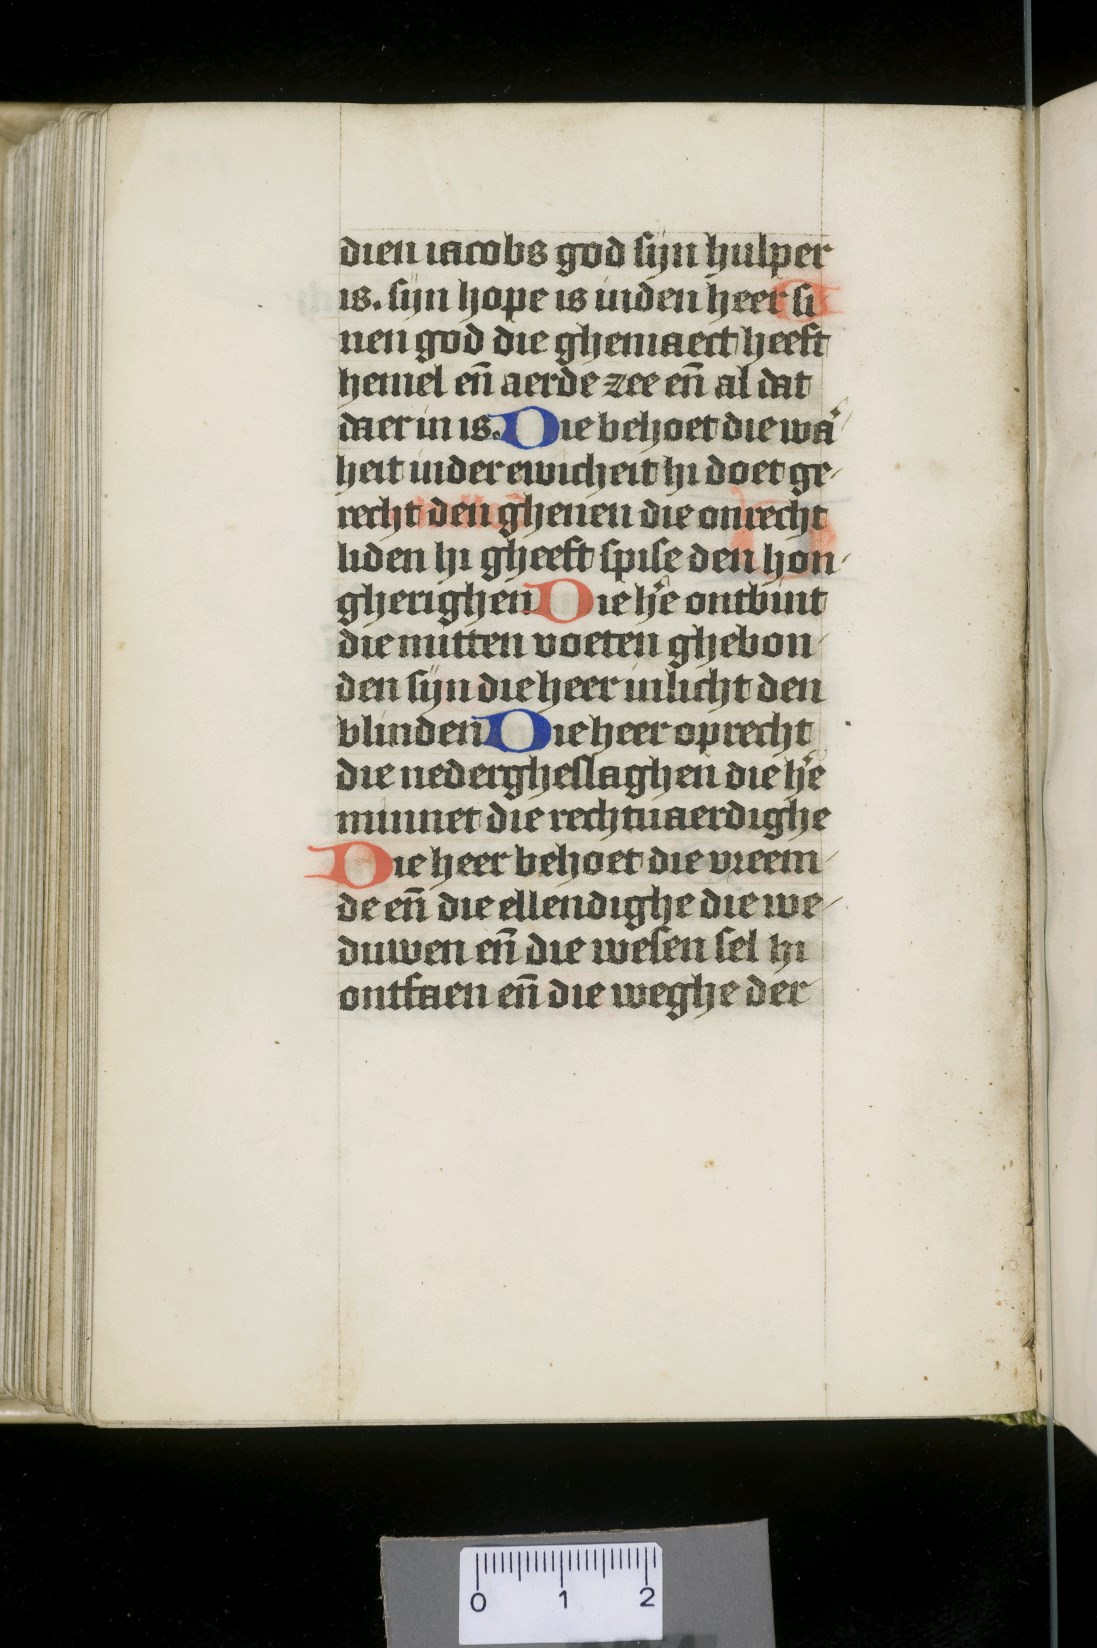 dien iacobs god sijn hulper
is. sijn hope is inden heer si
nen god die ghemaect heeft
hemel eñ aerde zee eñ al dat
daer in is. Die behoet die waͬ
heit inder ewicheit hi doet ge-
recht den ghenen die onrecht
liden hi gheeft spise den hon-
gherighen Die hͬe ontbint
die mitten voeten ghebon-
den sijn die heer inlicht den
blinden Die heer oprecht
die nederghеslaghen die hͬe
minnet die rechtuaerdighe
Die heer behoet die vreem-
de eñ die ellendighe die we-
duwen eñ die wesen sel hi
ontfaen eñ die weghe der
0 1 2